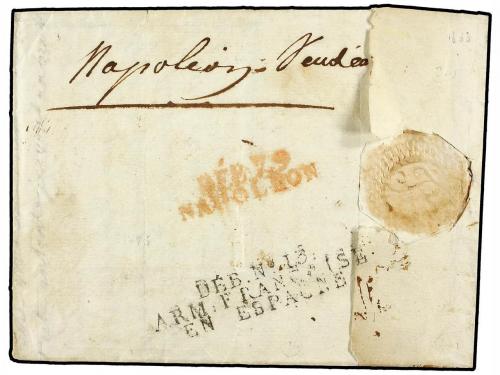 Napoléon = Vendée
DÉB. 79
NAPOLÉON
DÉB. Nº. 13.
ARM. FRANÇAISE
EN ESPAGNE